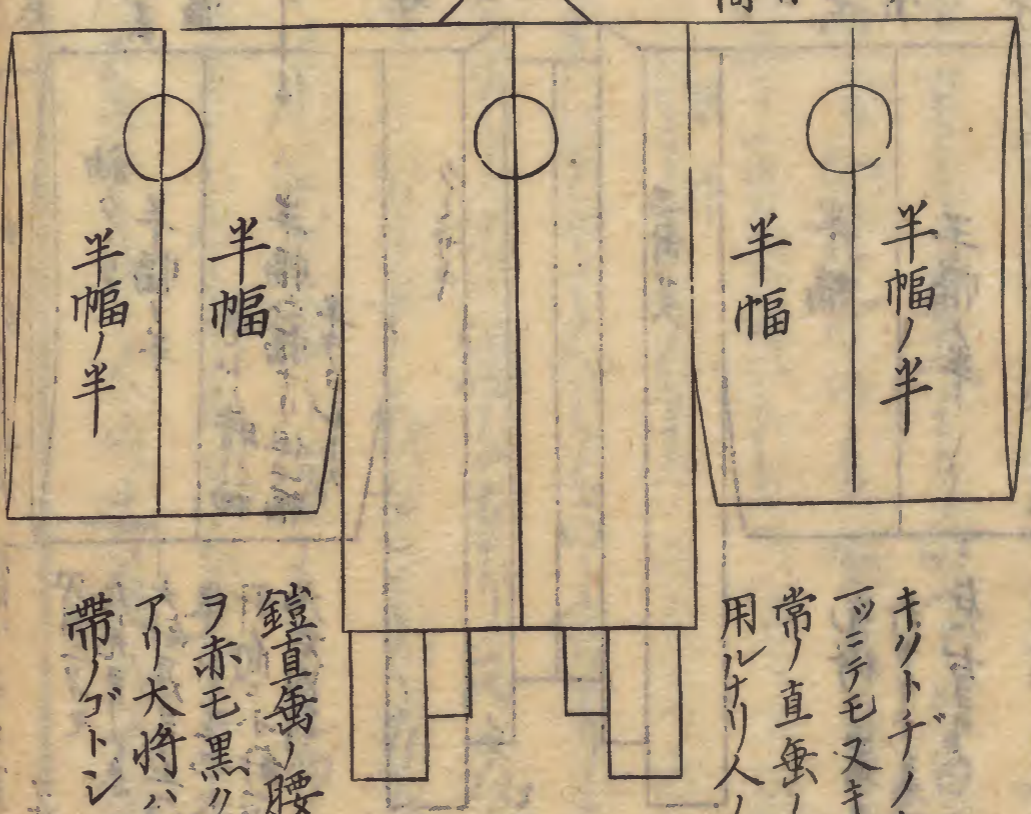 半幅ノ半
半幅
半幅
半幅ノ半
キクトヂノ
一ツニテモ又キ
常ノ直垂ノ
用ルナリ人ノ
鎧直垂ノ腰
ヲ赤モ黒ク
アリ大将ハ
帯ノゴトシ